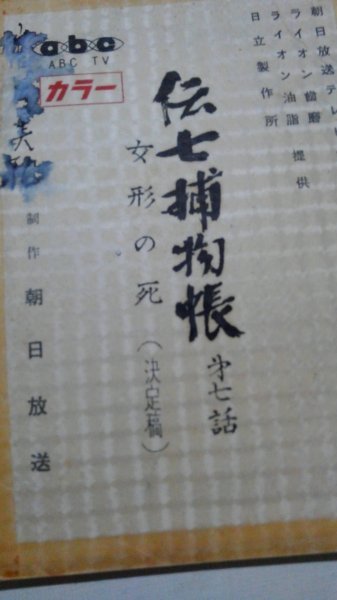 朝日放送テレビ
ライオン歯磨
ライオン油脂 提供
日立製作所
伝七捕物帳
第七話
女形の死
(決定稿)
abc
ABC TV
カラー
制作 朝日放送